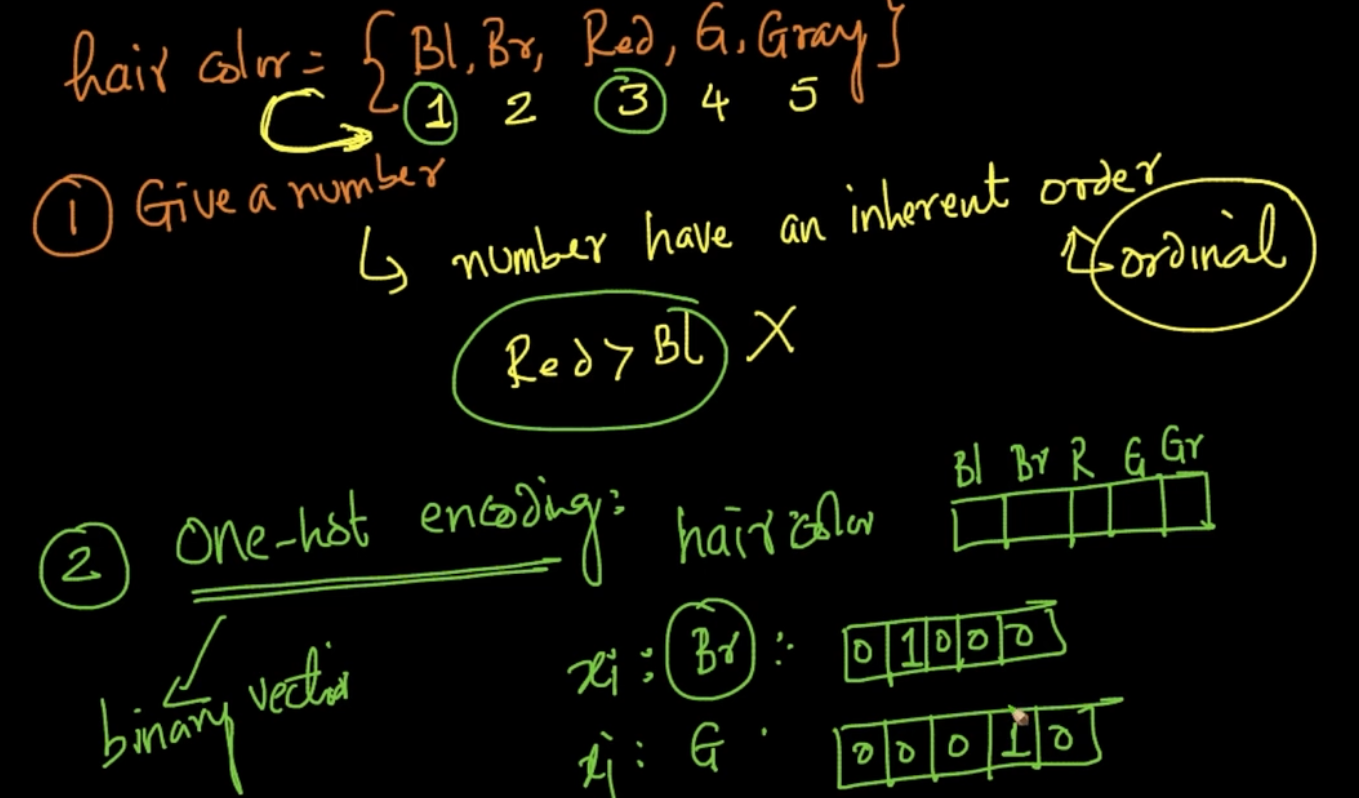 hair color = { Bl, Br, Red, G, Gray }
1 2 3 4 5
1 Give a number
↳ number have an inherent order
ordinal
Red > Bl X
Bl Br R G Gr
2 One-hot encoding: hair color
xi : Br : 0 1 0 0 0
binary vector
xj : G . 0 0 0 1 0